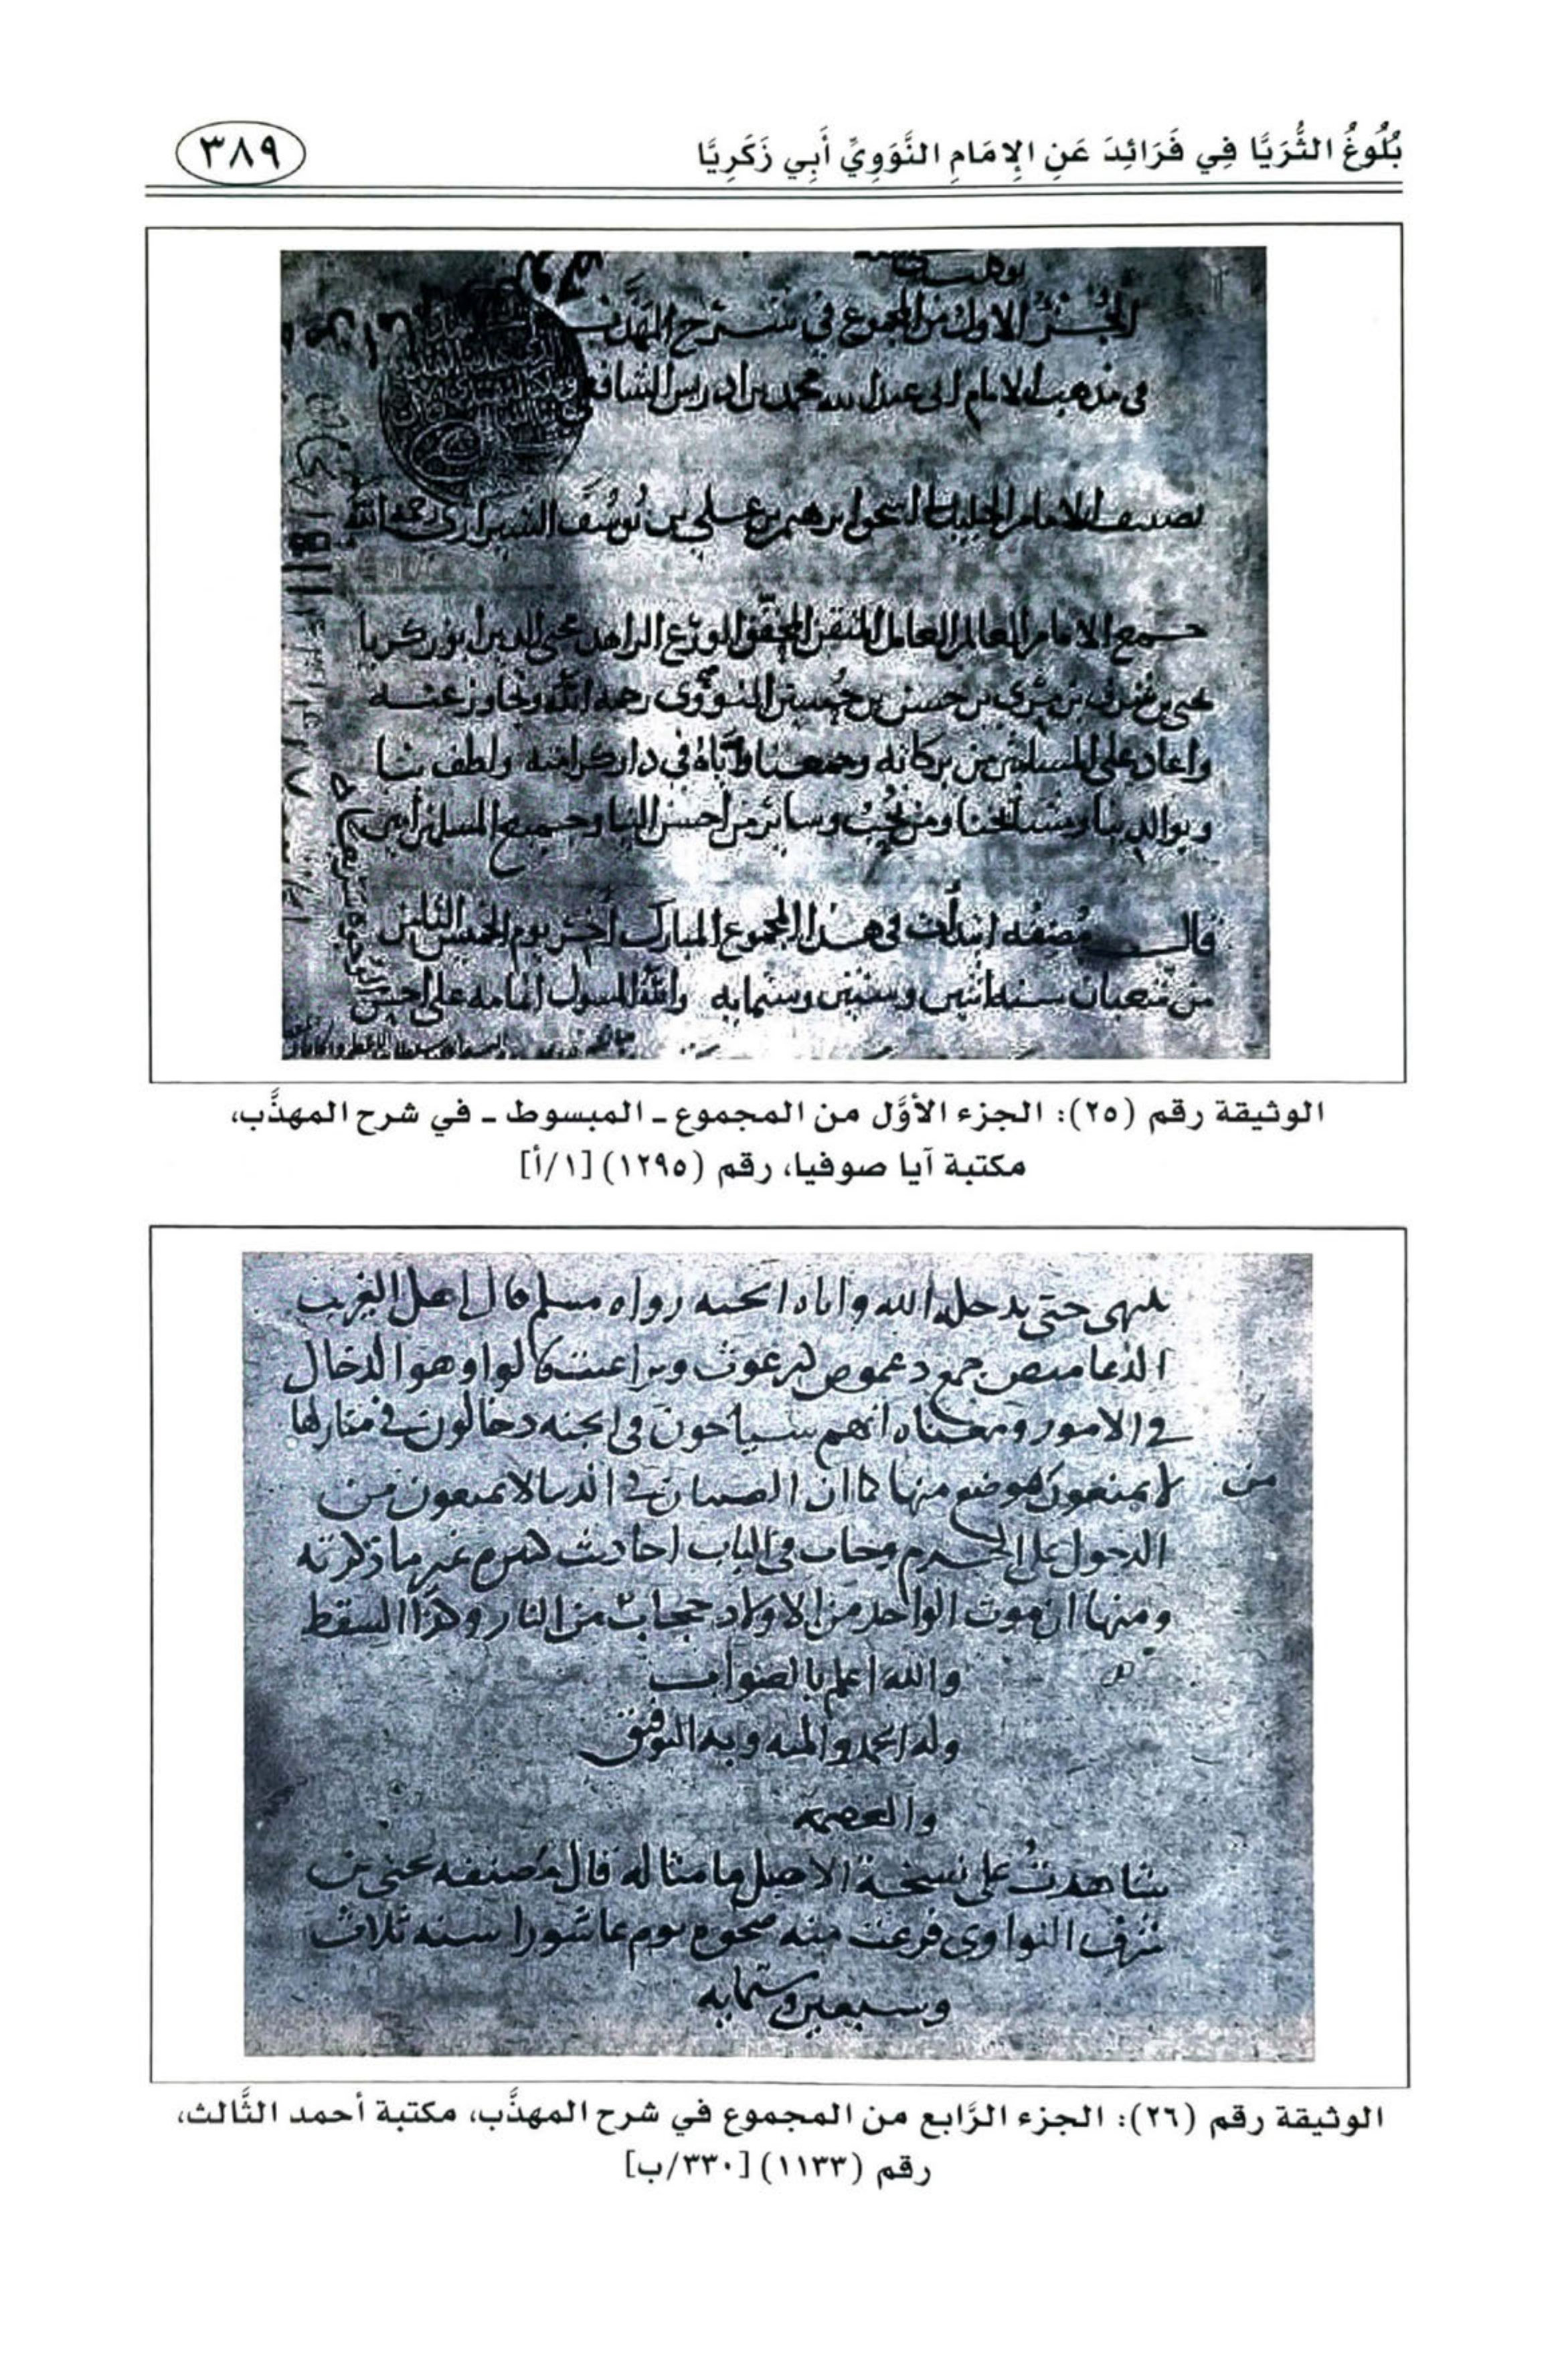 بُلُوغُ الثُّرَيَّا فِي فَرَائِدَ عَنِ الإِمَامِ النَّوَوِيِّ أَبِي زَكَرِيَّا
٣٨٩
الجزء الاول من المجموع في شرح المهذب
في مذهب الامام ابي عبد الله محمد بن ادريس الشافعي
تصنيف الامام الجليل ابي اسحق ابرهيم بن علي بن يوسف الشيرازي رحمه الله
جمع الامام العالم العامل المتقن المحقق الورع الزاهد محيي الدين أبو زكريا
يحيى بن شرف بن مرى بن حسن بن حسين النووى رحمه الله وتجاوز عنه
واعاد على المسلمين من بركاته وجمعنا واياه في دار كرامته ولطف بنا
وبوالدينا ومشايخنا ومن نحب وساير من أحسن الينا وجميع المسلمين أمين
قال مصنفه ابتدأت في هذا المجموع المبارك أخر يوم الخميس الثامن
من شعبان سنة اثنين وستين وستمايه والله المسول اتمامه على احسن
الوثيقة رقم (٢٥): الجزء الأوَّل من المجموع ـ المبسوط ـ في شرح المهذَّب،
مكتبة آيا صوفيا، رقم (١٢٩٥) [١/أ]
ينهى حتى يدخله الله واباه الجنه رواه مسلم قال اهل الغريب
الدعاميص جمع دعموص كبرغوث وبراغيث قالوا وهو الدخال
في الامور ومعناه أنهم سياحون في الجنه دخالون في منازلها
لا يمنعون موضع منها كما ان الصبيان في الدنيا لا يمنعون من
من
الدخول على الحرم وجات في الباب احاديث كثيره غير ما ذكرته
ومنها ان موت الواحد من الاولاد حجاب من النار وكذا السقط
والله اعلم بالصواب
وله الحمد والمنه وبه التوفيق
والعصمه
شاهدت على نسخة الاصل ما مثاله قال مصنفه يحيى بن
شرف النواوى فرغت منه ضحوه يوم عاشورا سنه ثلاث
وسبعين وستمايه
الوثيقة رقم (٢٦): الجزء الرَّابع من المجموع في شرح المهذَّب، مكتبة أحمد الثَّالث،
رقم (١١٣٣) [٣٣٠/ب]